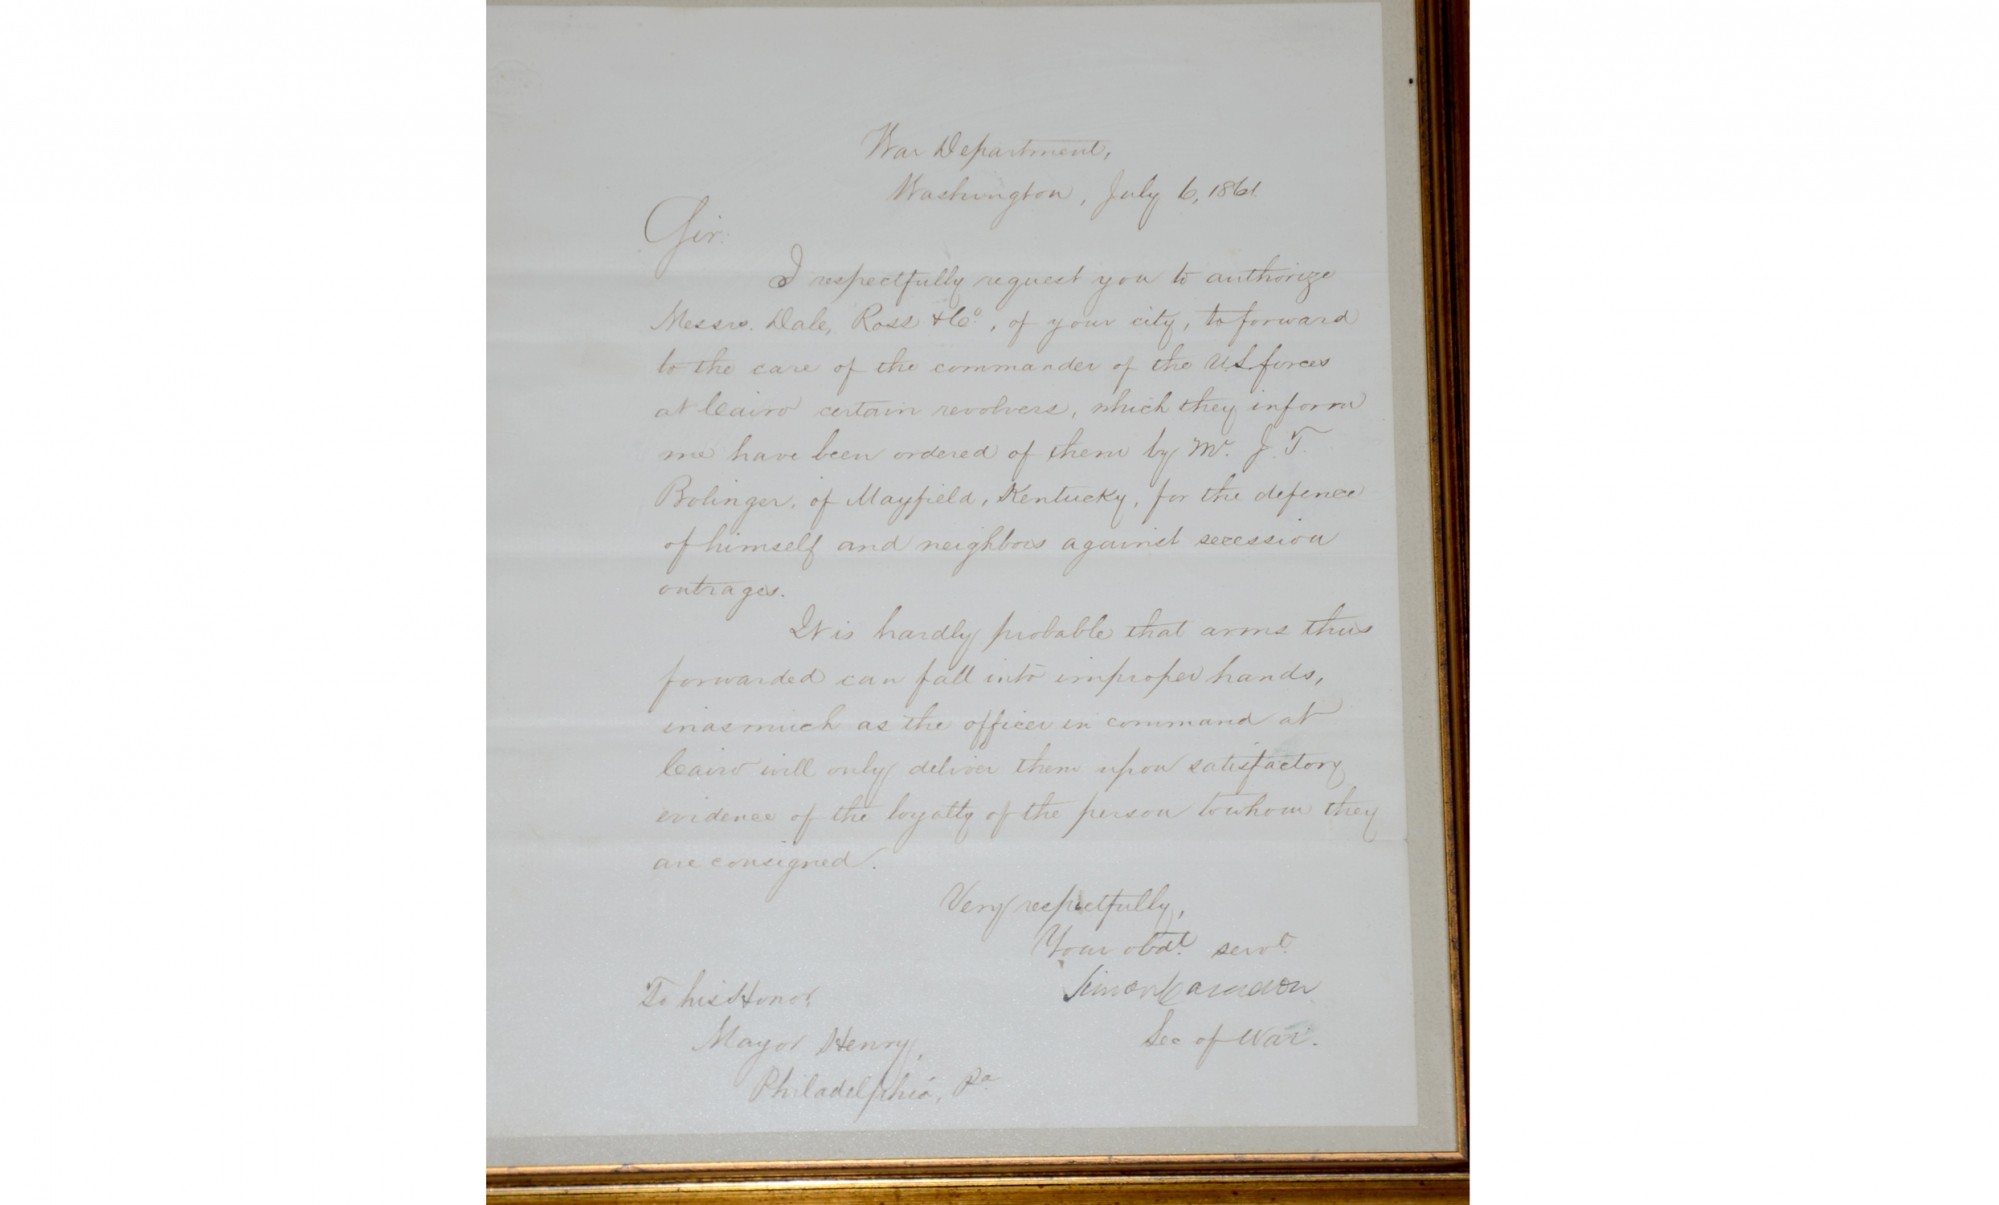 War Department,
Washington, July 6, 1861.
Sir:
I respectfully request you to authorize
Messrs. Dale, Ross & Co., of your city, to forward
to the care of the commander of the U.S. forces
at Cairo certain revolvers, which they inform
me have been ordered of them by Mr. J. T.
Bolinger, of Mayfield, Kentucky, for the defence
of himself and neighbors against secession
outrages.
It is hardly probable that arms thus
forwarded can fall into improper hands,
inasmuch as the officer in command at
Cairo will only deliver them upon satisfactory
evidence of the loyalty of the person to whom they
are consigned.
Very respectfully,
Your obdt. servt.
Simon Cameron
Sec of War.
To his Honor,
Mayor Henry,
Philadelphia, Pa